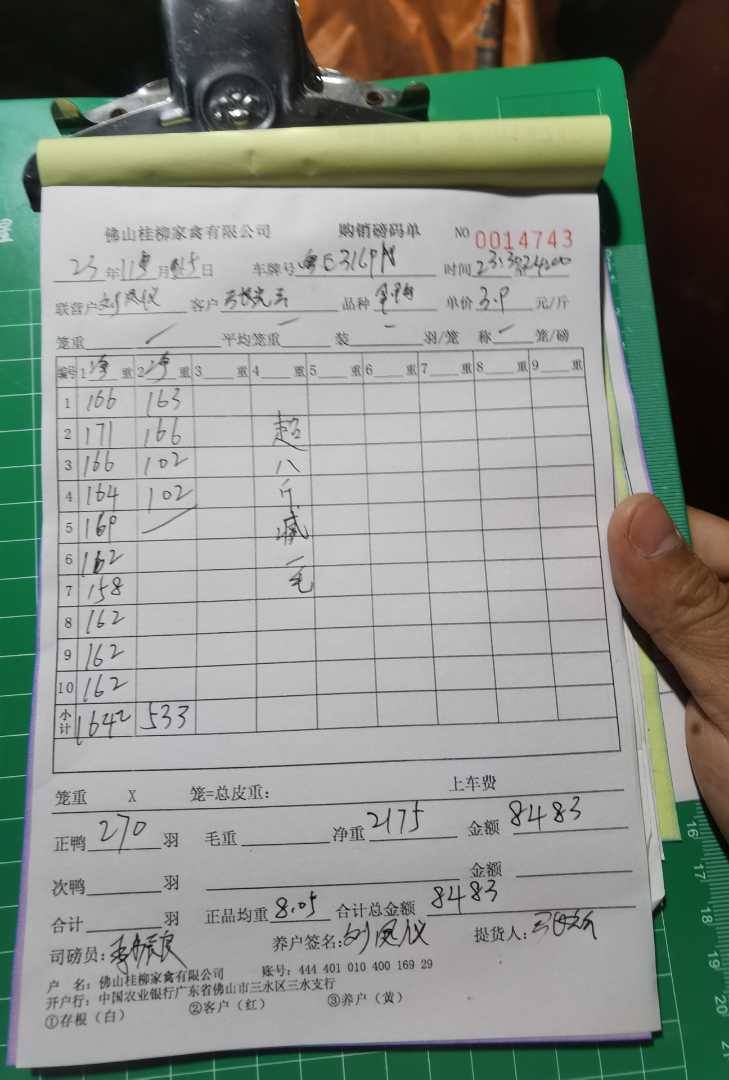 佛山桂柳家禽有限公司 购销磅码单 NO 0014743
23年11月15日 车牌号粤E316 时间
联营户刘凤仪 客户 品种 单价3.9元/斤
笼重 平均笼重 装 羽/笼 称 笼/磅
编号 1净重 2净重 3重 4重 5重 6重 7重 8重 9重
1 166 163
2 171 166 超
3 166 102 八
4 164 102 斤
5 169 减
6 162 一
7 158 毛
8 162
9 162
10 162
小计 1642 533
笼重 X 笼=总皮重: 上车费
正鸭270羽 毛重 净重2175 金额8483
次鸭 羽 金额
合计 羽 正品均重8.05 合计总金额8483
司磅员: 养户签名:刘凤仪 提货人:
户 名: 佛山桂柳家禽有限公司 账号: 444 401 010 400 169 29
开户行: 中国农业银行广东省佛山市三水区三水支行
①存根(白) ②客户(红) ③养户(黄)
15
16
17
18
19
20
21